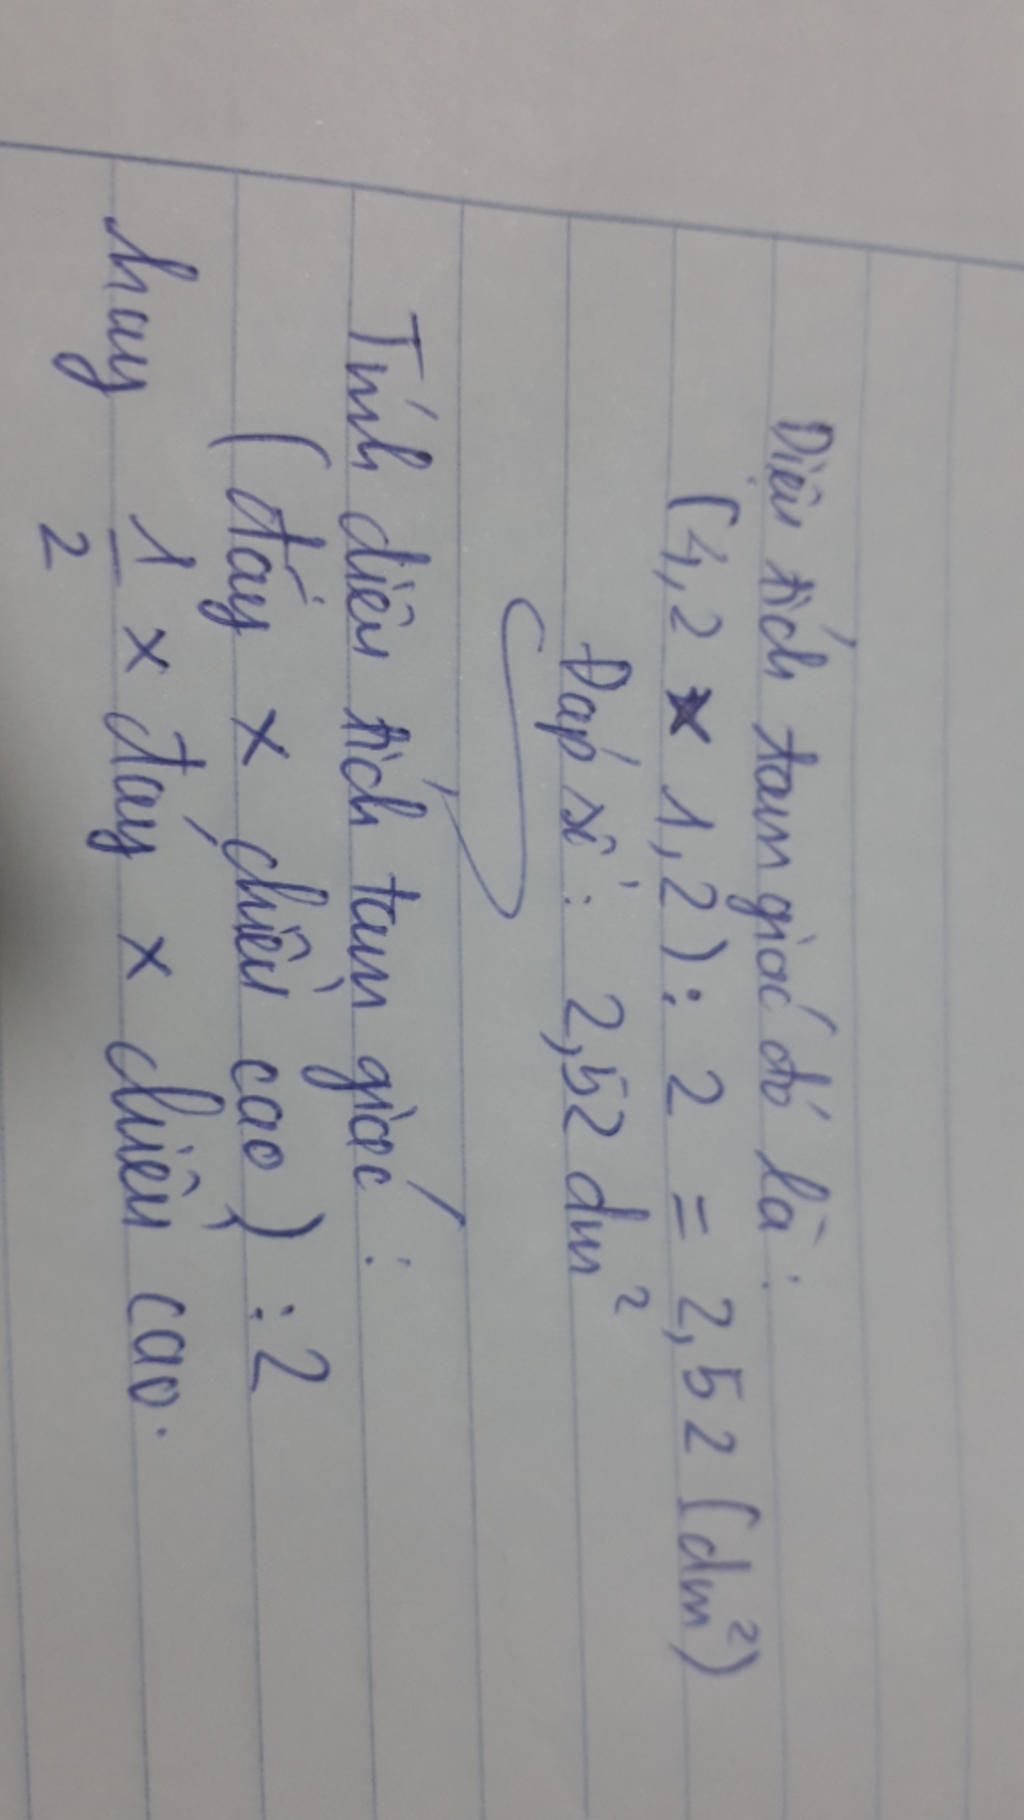 Diện tích tam giác đó là:
(4,2 x 1,2) : 2 = 2,52 (dm²)
Đáp số : 2,52 dm²
Tính diện tích tam giác :
(đáy x chiều cao) : 2
hay 1/2 x đáy x chiều cao.